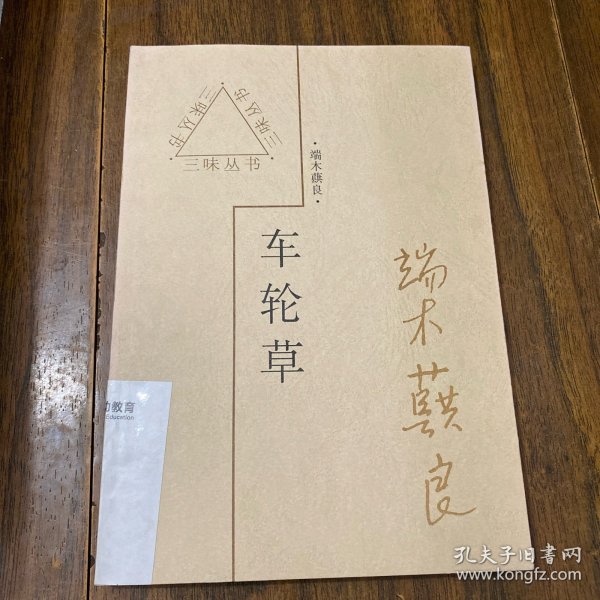 三味丛书
三味丛书
三味丛书
·端木蕻良·
车轮草
端木蕻良
力教育
Education
孔夫子旧书网
www.kongfz.com